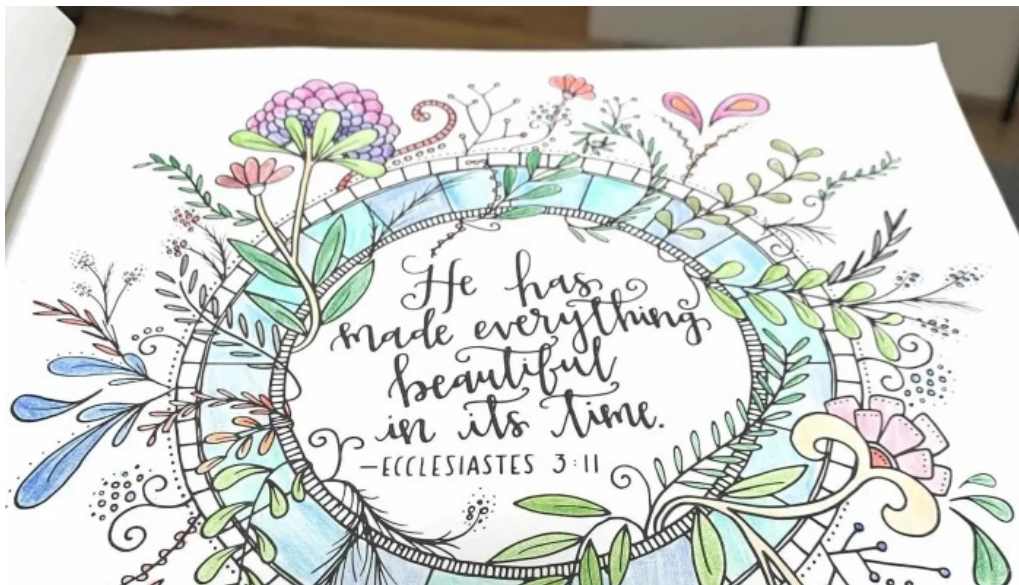 He has
made everything
beautiful
in its time.
—ECCLESIASTES 3:11